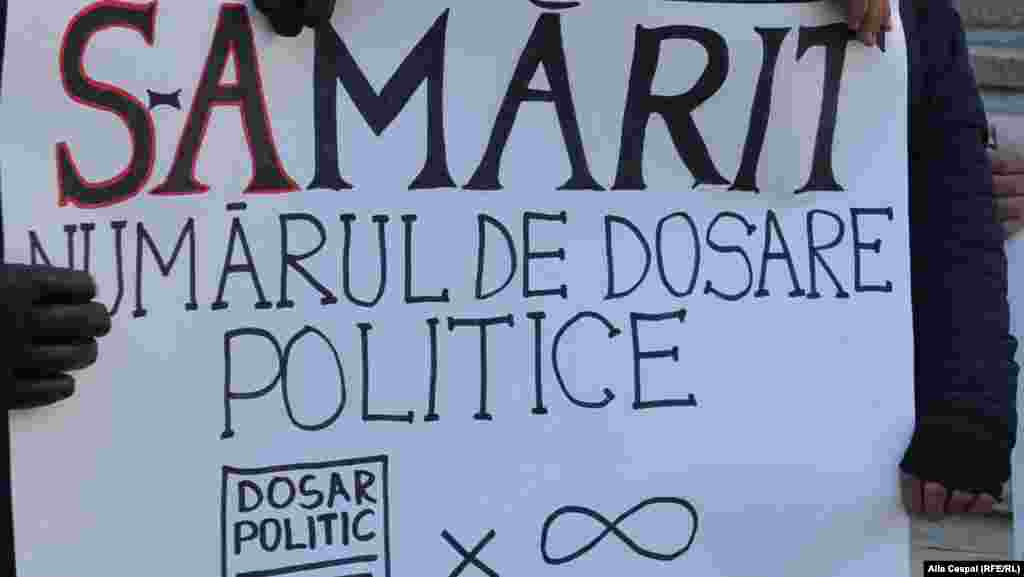 S-A MĀRIT
NUMĀRUL DE DOSARE
POLITICE
DOSAR
POLITIC
× ∞
Alla Ceapai (RFE/RL)